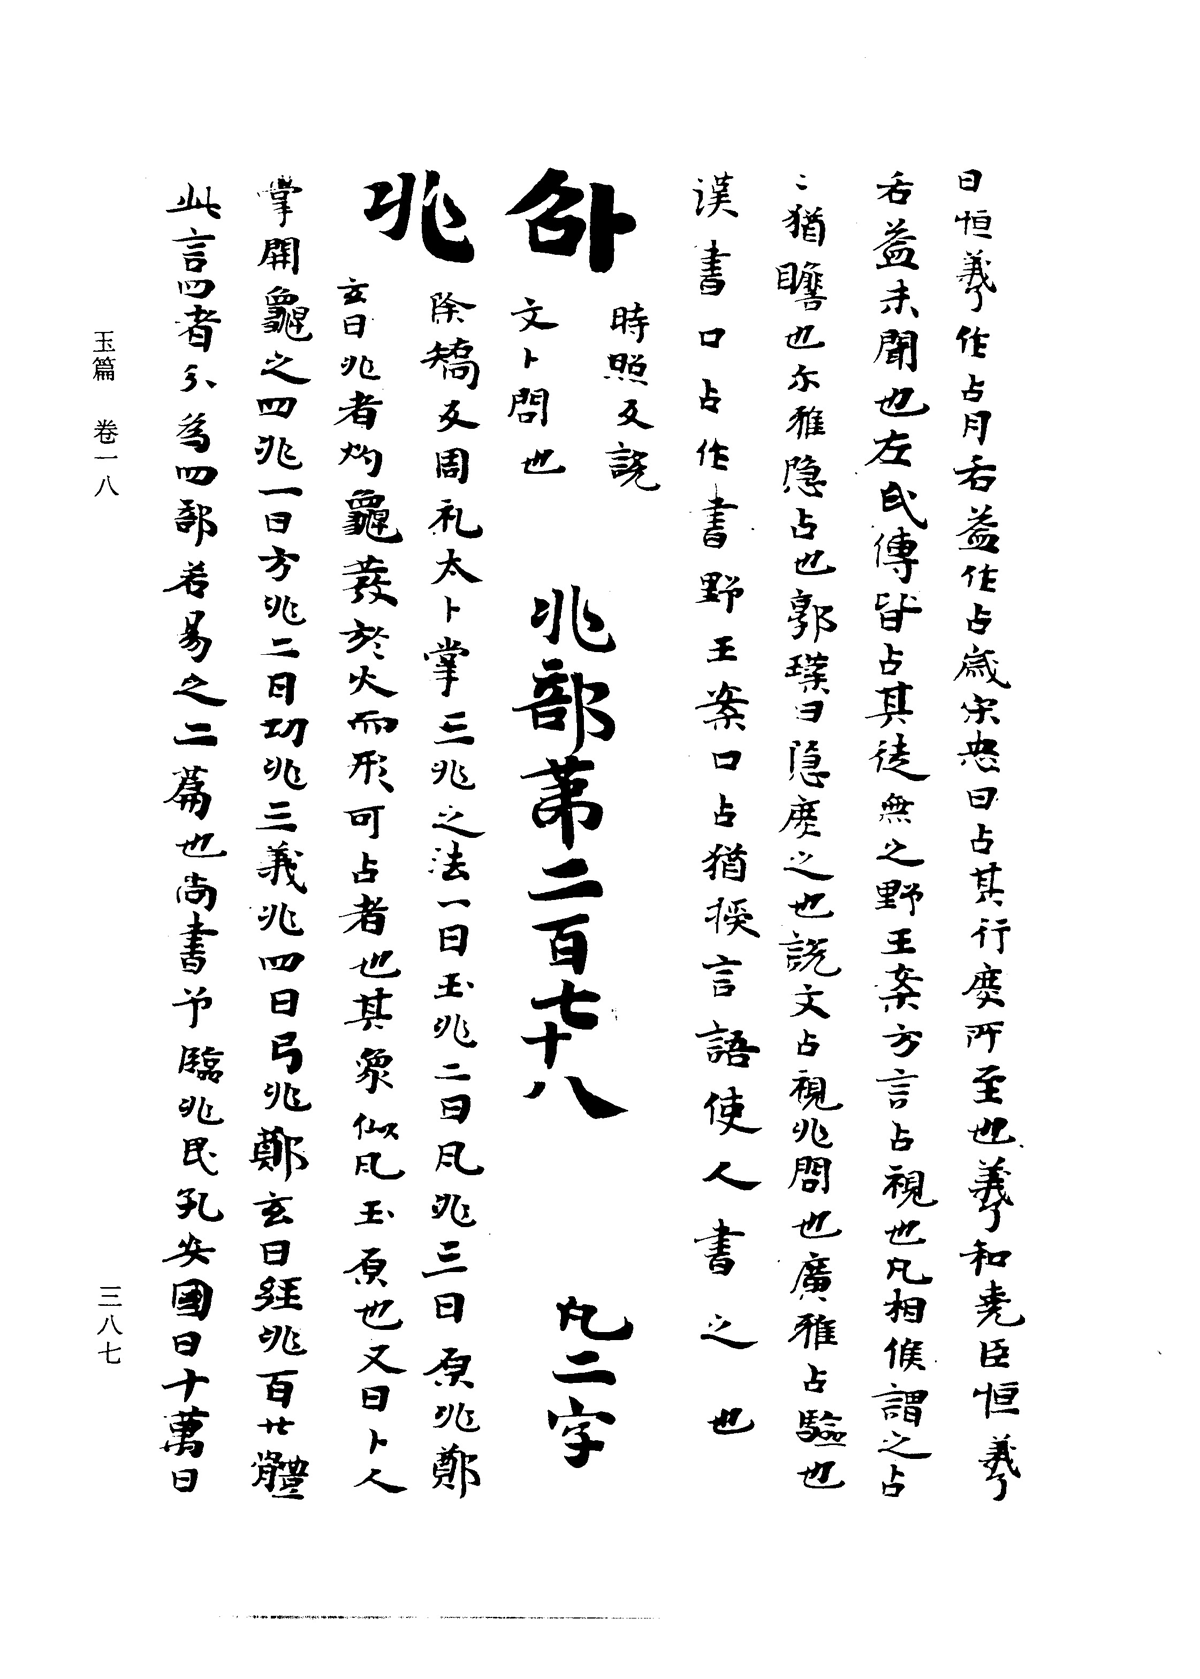 曰恒羲作占月右益作占歲宋忠曰占其行度所至也羲和堯臣恒羲
右益未聞也左氏傳皆占其徒無之野王案方言占視也凡相候謂之占
〻猶瞻也尒雅隐占也郭璞曰隐度之也說文占視兆問也廣雅占驗也
漢書口占作書野王案口占猶授言語使人書之也
卲 時照反說
文卜問也
兆部第二百七十八 凡二字
兆 除矯反周礼太卜掌三兆之法一曰玉兆二曰瓦兆三曰原兆鄭
玄曰兆者灼龜發於火而形可占者也其象似瓦玉原也又曰卜人
掌開龜之四兆一曰方兆二曰功兆三義兆四曰弓兆鄭玄曰經兆百廿體
此言四者分為四部若易之二篇也尚書予臨兆民孔安國曰十萬曰
玉篇 卷一八
三八七